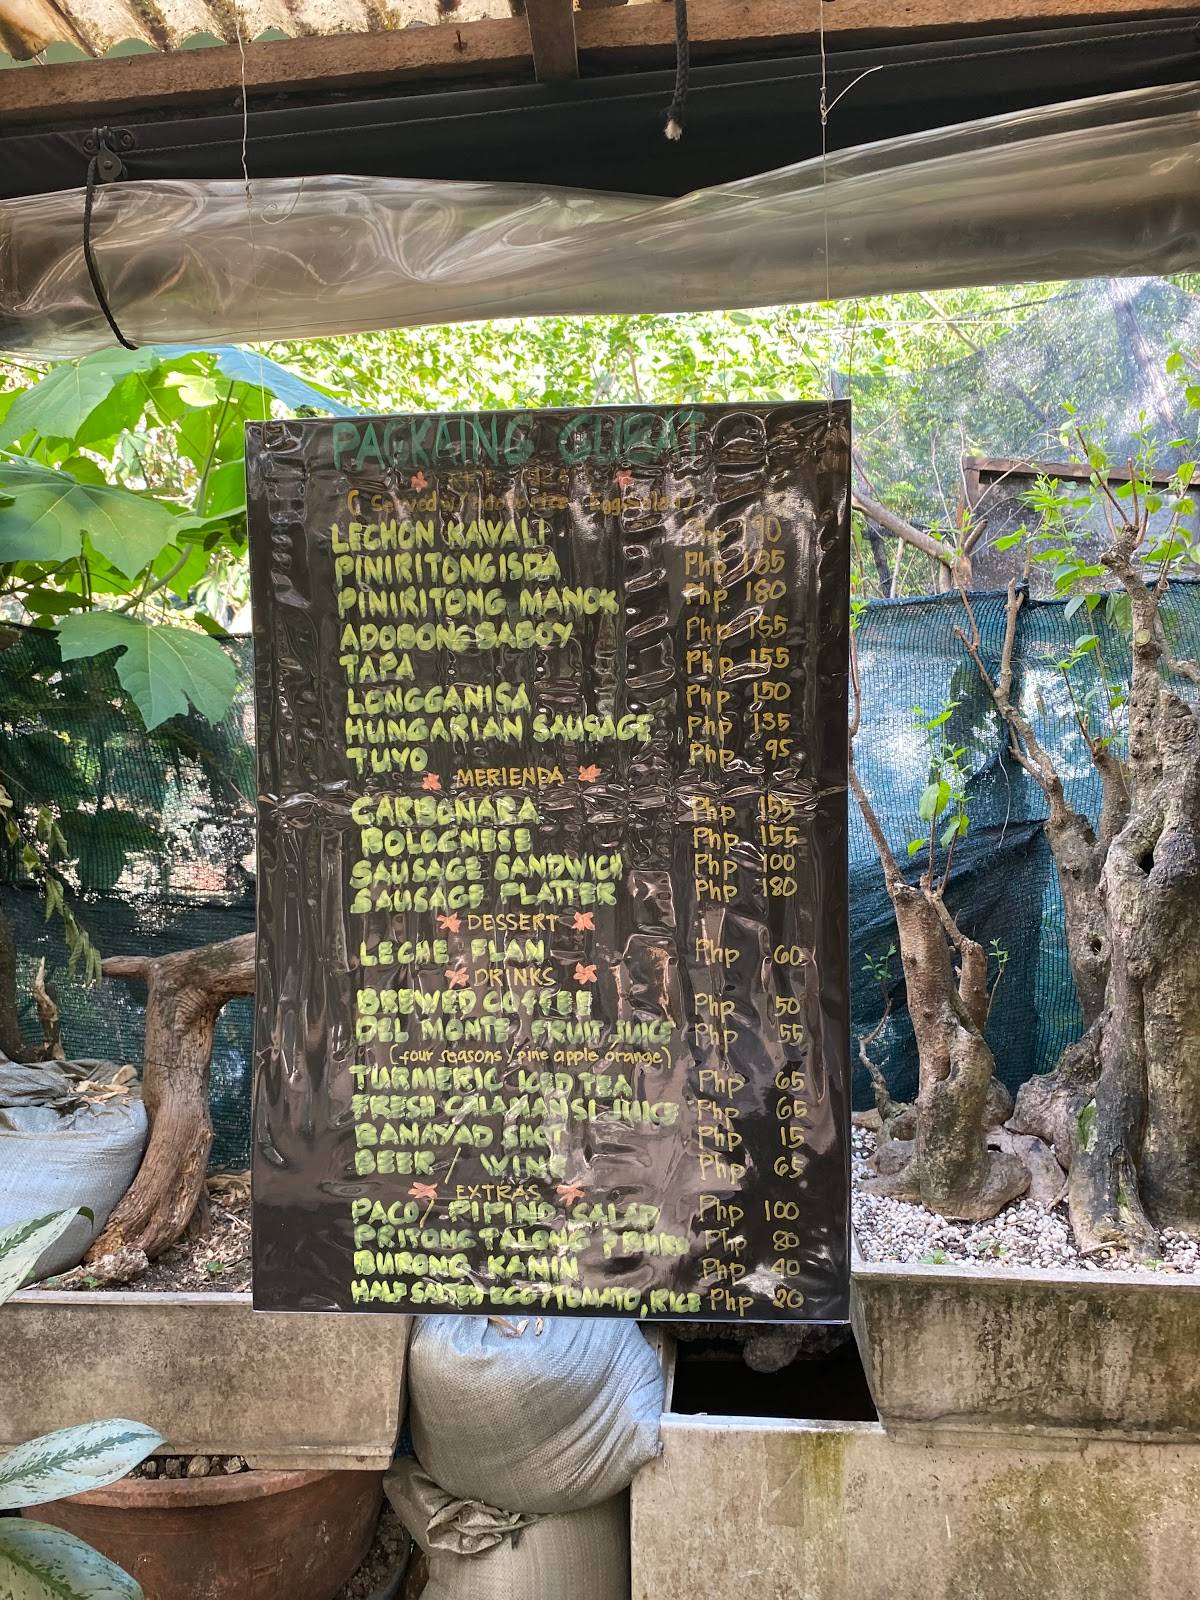 PAGKAING GUBAT
(Served w/ adobo rice Egg salad)
LECHON KAWALI Php 190
PINIRITONG ISDA Php 185
PINIRITONG MANOK Php 180
ADOBONG BABOY Php 155
TAPA Php 155
LONGGANISA Php 150
HUNGARIAN SAUSAGE Php 135
TUYO Php 95
MERIENDA
CARBONARA Php 155
BOLOGNESE Php 155
SAUSAGE SANDWICH Php 100
SAUSAGE PLATTER Php 180
DESSERT
LECHE FLAN Php 60
DRINKS
BREWED COFFEE Php 50
DEL MONTE FRUIT JUICE Php 55
(four seasons / pine apple orange)
TURMERIC ICED TEA Php 65
FRESH CALAMANSI JUICE Php 65
BANAYAD SHOT Php 15
BEER / WINE Php 65
EXTRAS
PACO / PIPINO SALAD Php 100
PRITONG TALONG Php 80
BURONG KANIN Php 40
HALF SALTED EGG / TOMATO, RICE Php 20